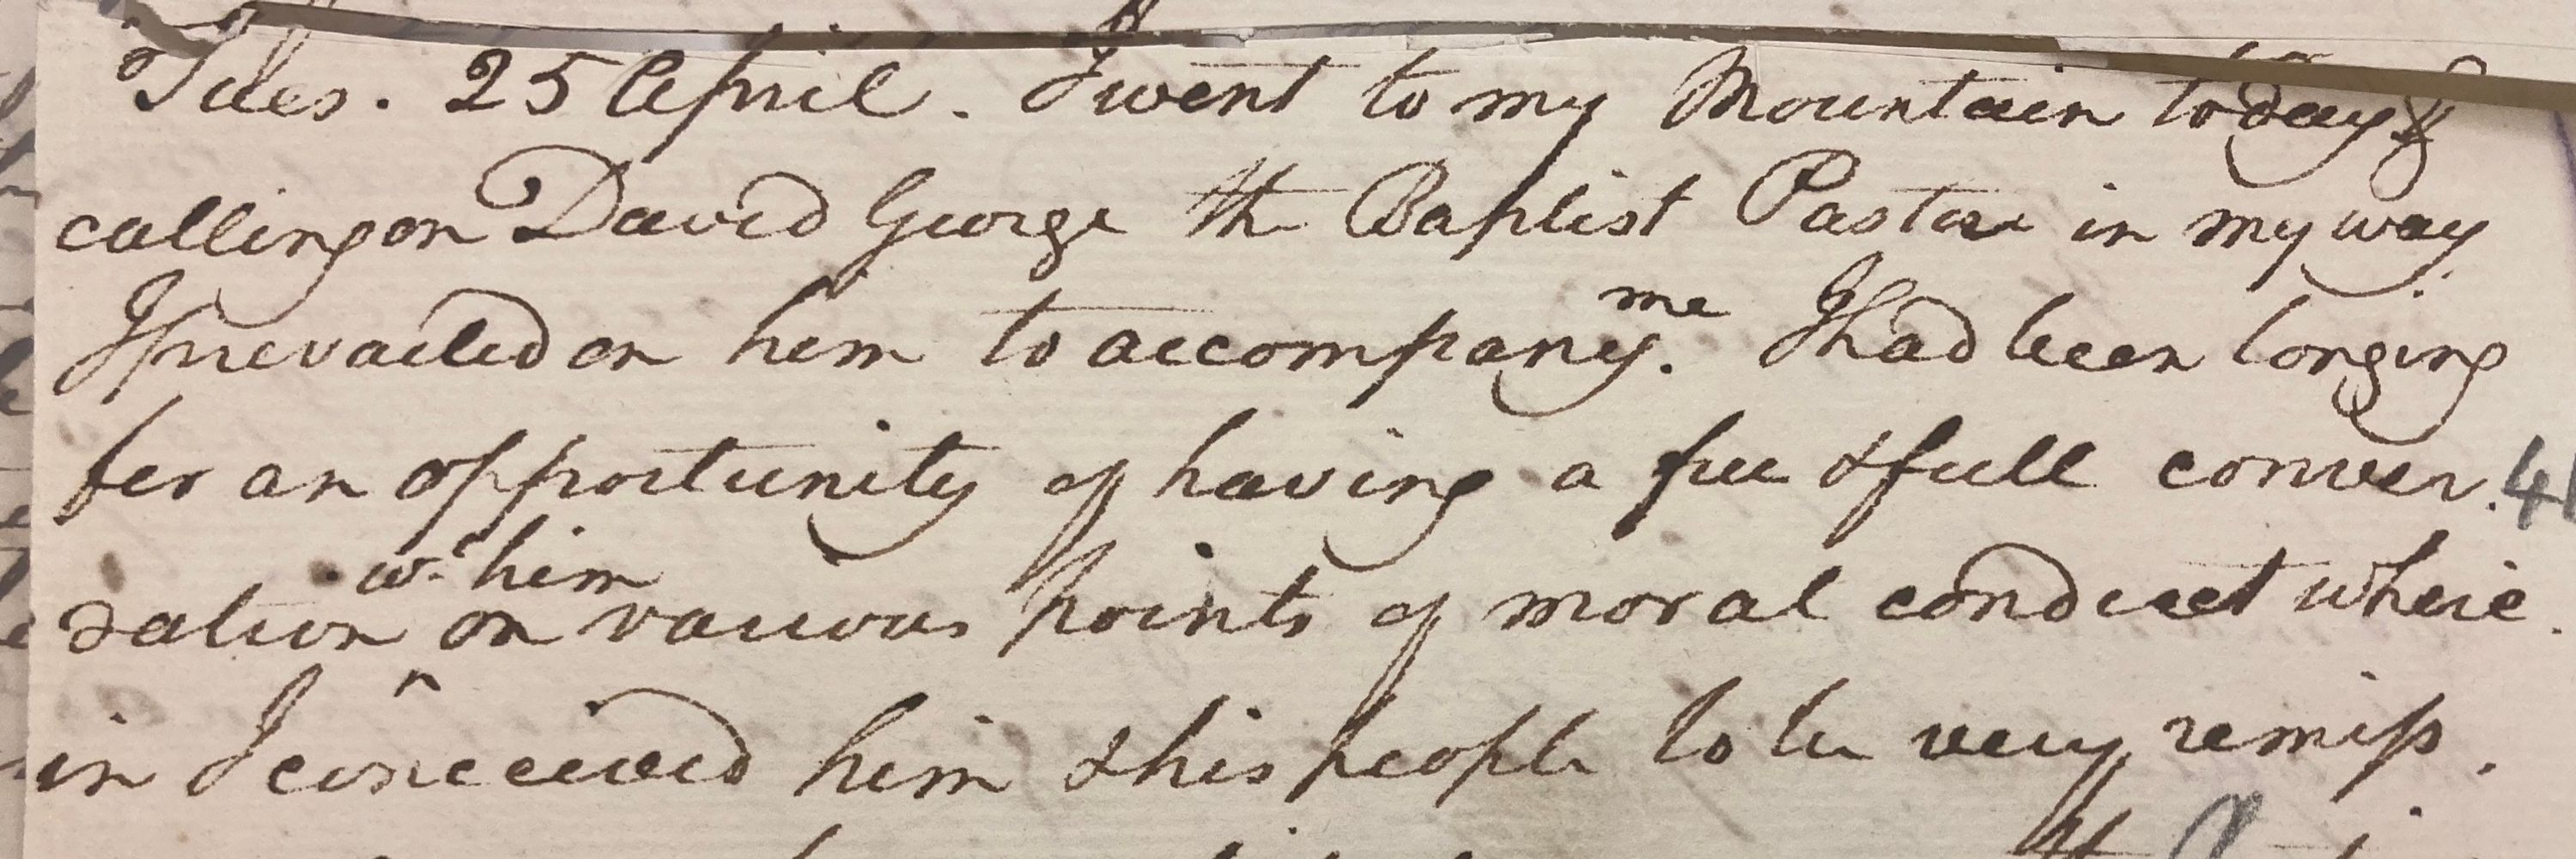 Tues. 25 April. I went to my Mountain today &
calling on David George the Baptist Pastor in my way
I prevailed on him to accompany me. I had been longing
for an opportunity of having a free & full conver. 41
sation on wh. him various points of moral conduct where.
in I conceived him & his people to be very remiss.